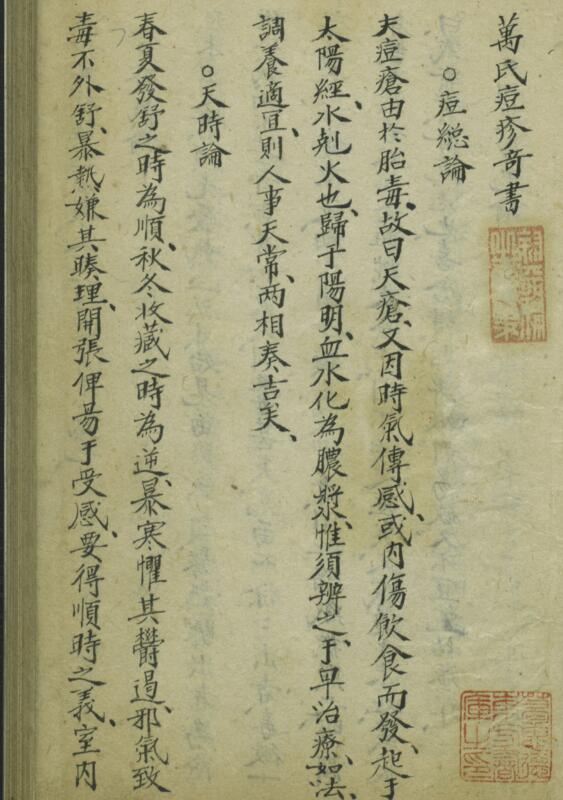 萬氏痘疹奇書
○痘総論
夫痘瘡由於胎毒、故曰天瘡、又因時氣傳感、或內傷飲食而發、起于
太陽經、水剋火也、歸于陽明、血水化為膿漿、惟須辨之、于早治療、如法、
調養適宜、則人事天常、两相奏吉矣、
○天時論
春夏發舒之時為順、秋冬收藏之時為逆、暴寒懼其欝遏、邪氣致
毒不外舒、暴熱嫌其腠理、開張俾易于受感、要得順時之義、室內